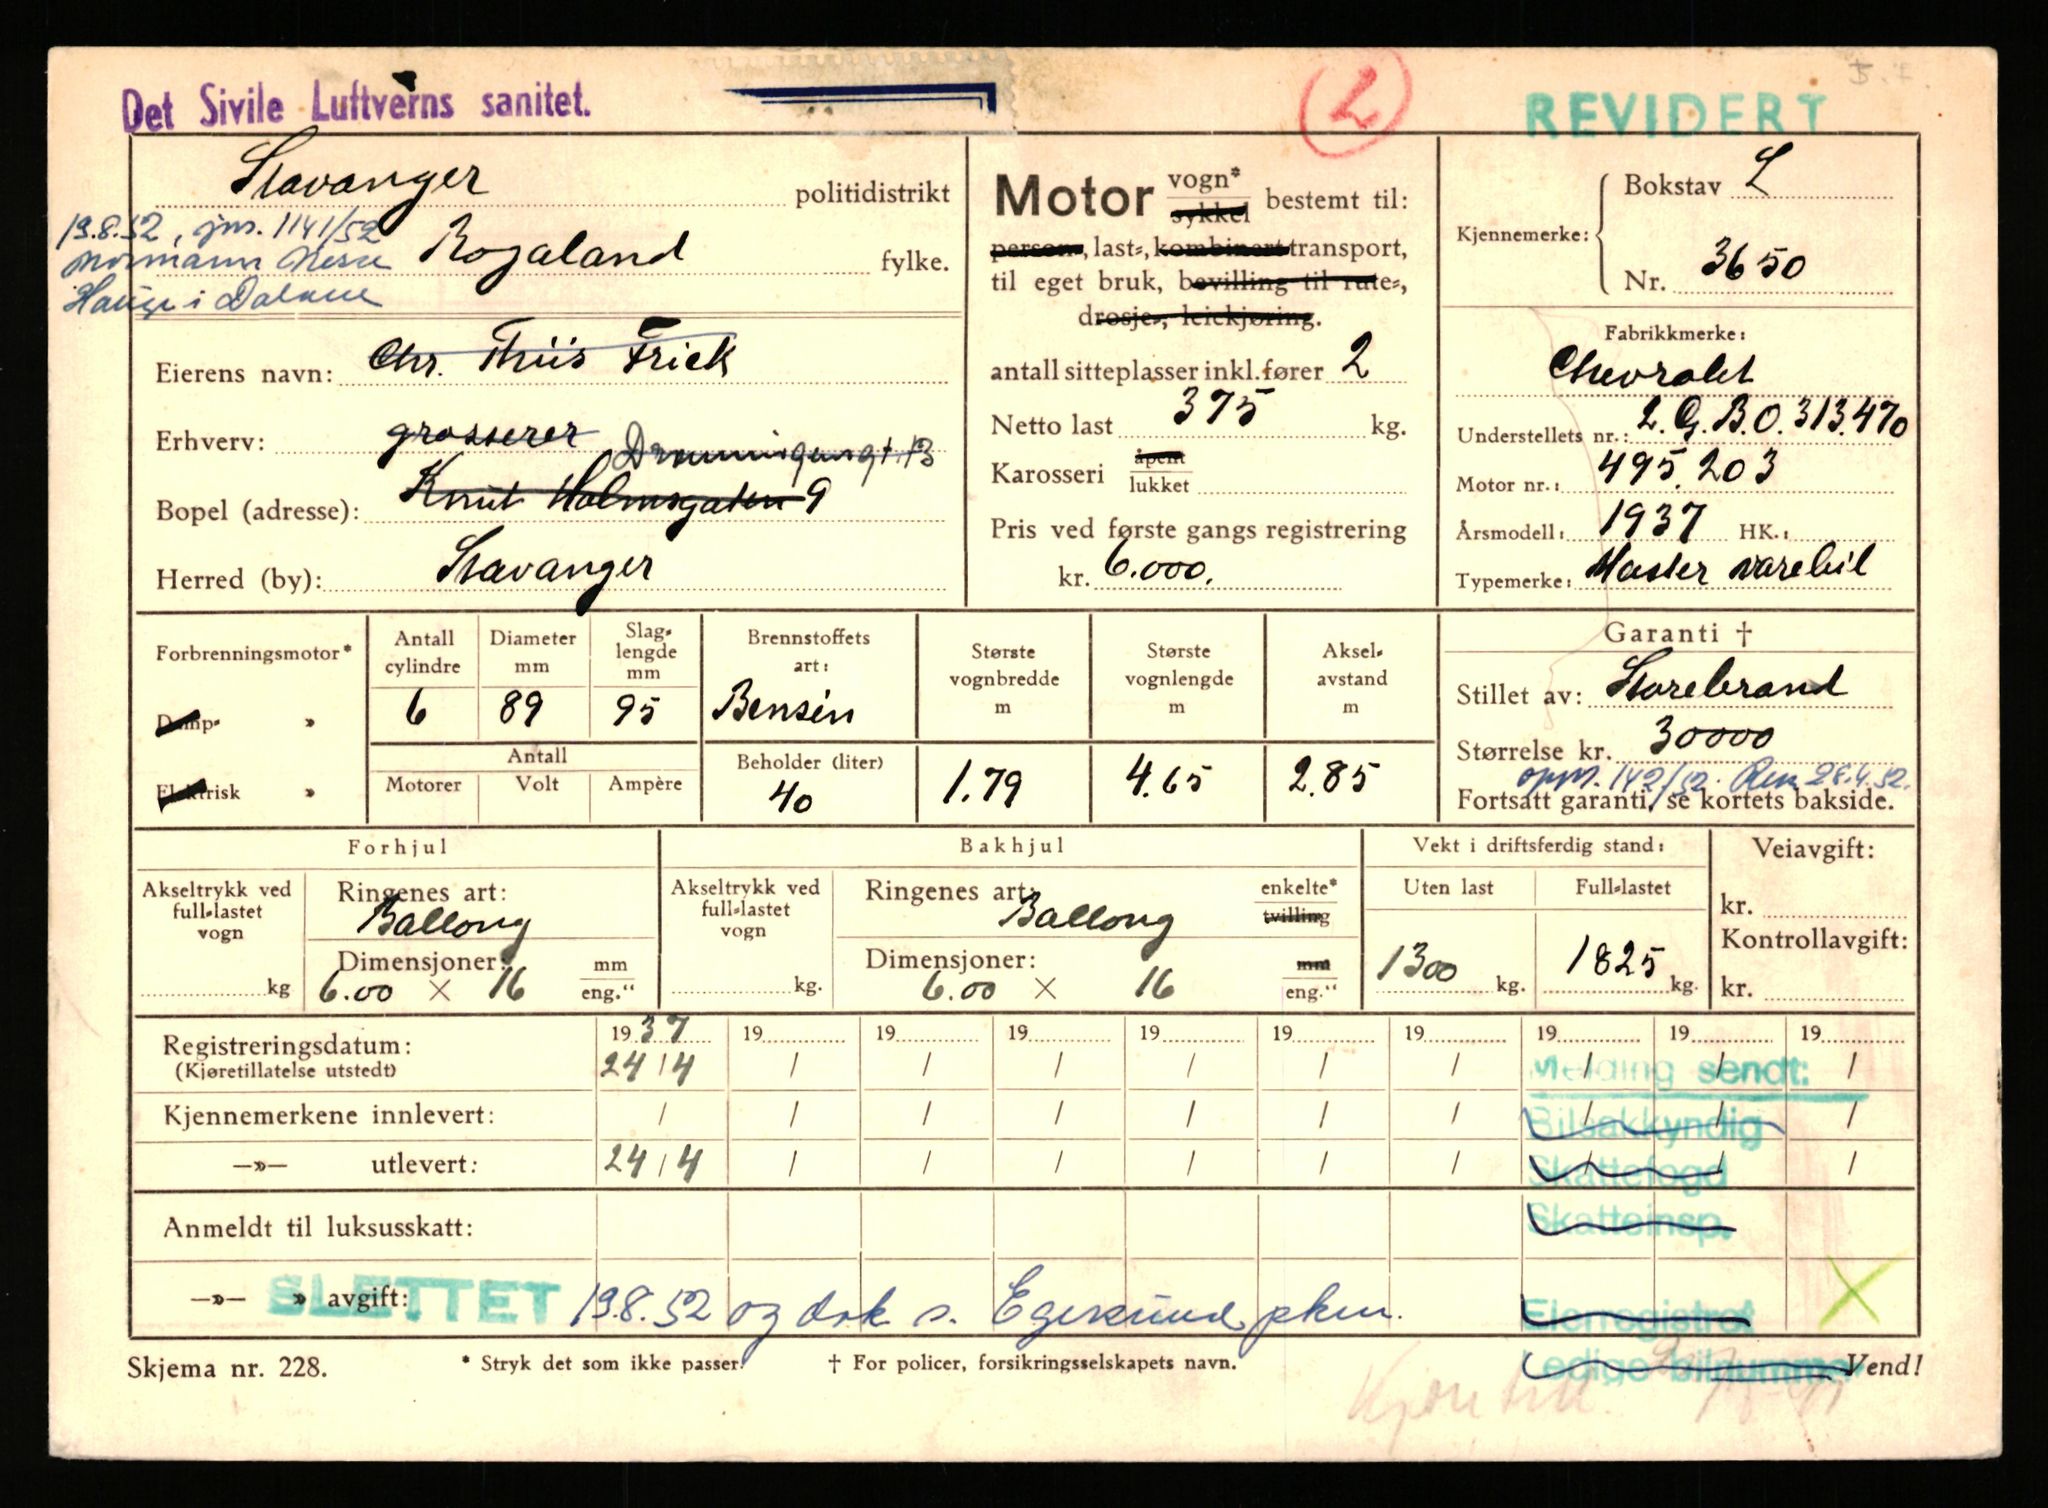 Det Sivile Luftverns sanitet.
2
REVIDERT
Stavanger politidistrikt
19.8.52, jnr. 1141/52
Rogaland fylke.
Normann Nesse
Hauge i Dalane
Eierens navn: Chr. Thiis Frick
Erhverv: grosserer
Dronningensgt. 13
Bopel (adresse): Knut Holmsgaten 9
Herred (by): Stavanger
Motor vogn*
sykkel bestemt til:
person-, last-, kombinert transport,
til eget bruk, bevilling til rute-,
drosje-, leiekjøring.
antall sitteplasser inkl. fører 2
Netto last 375 kg.
Karosseri åpent
lukket
Pris ved første gangs registrering
kr. 6.000.
Kjennemerke: Bokstav L
Nr. 3650
Fabrikkmerke:
Chevrolet
Understellets nr.: 2.G.B.O.313.470
Motor nr.: 495.203
Årsmodell: 1937 HK.:
Typemerke: Master varebil
Forbrenningsmotor*
Damp- »
Elektrisk »
Antall cylindre 6
Diameter mm 89
Slaglengde mm 95
Antall
Motorer Volt Ampère
Brennstoffets art: Bensin
Beholder (liter) 40
Største vognbredde m 1.79
Største vognlengde m 4.65
Akselavstand m 2.85
Garanti †
Stillet av: Storebrand
Størrelse kr. 30000
142/52 28.4.52.
Fortsatt garanti, se kortets bakside.
Forhjul
Akseltrykk ved full-lastet vogn
kg
Ringenes art: Ballong
Dimensjoner: mm
6.00 × 16 eng."
Bakhjul
Akseltrykk ved full-lastet vogn
kg.
Ringenes art: Ballong enkelte*
tvilling
Dimensjoner: mm
6.00 × 16 eng."
Vekt i driftsferdig stand:
Uten last Full-lastet
1300 kg. 1825 kg.
Veiavgift:
kr.
Kontrollavgift:
kr.
19 37 19 19 19 19 19 19 19 19 19
Registreringsdatum: 24/4 / / / / / / / / /
(Kjøretillatelse utstedt)
Kjennemerkene innlevert: / / / / / / / / / /
—»— utlevert: 24/4 / / / / / / / / /
Anmeldt til luksusskatt:
—»— » avgift:
SLETTET 19.8.52 og dok s. Egersund pkm.
Melding sendt:
Bilsakkyndig
Skattefogd
Skatteinsp.
Eierregistret
Ledige bilnummer
Skjema nr. 228.
* Stryk det som ikke passer.
† For policer, forsikringsselskapets navn.
Vend!